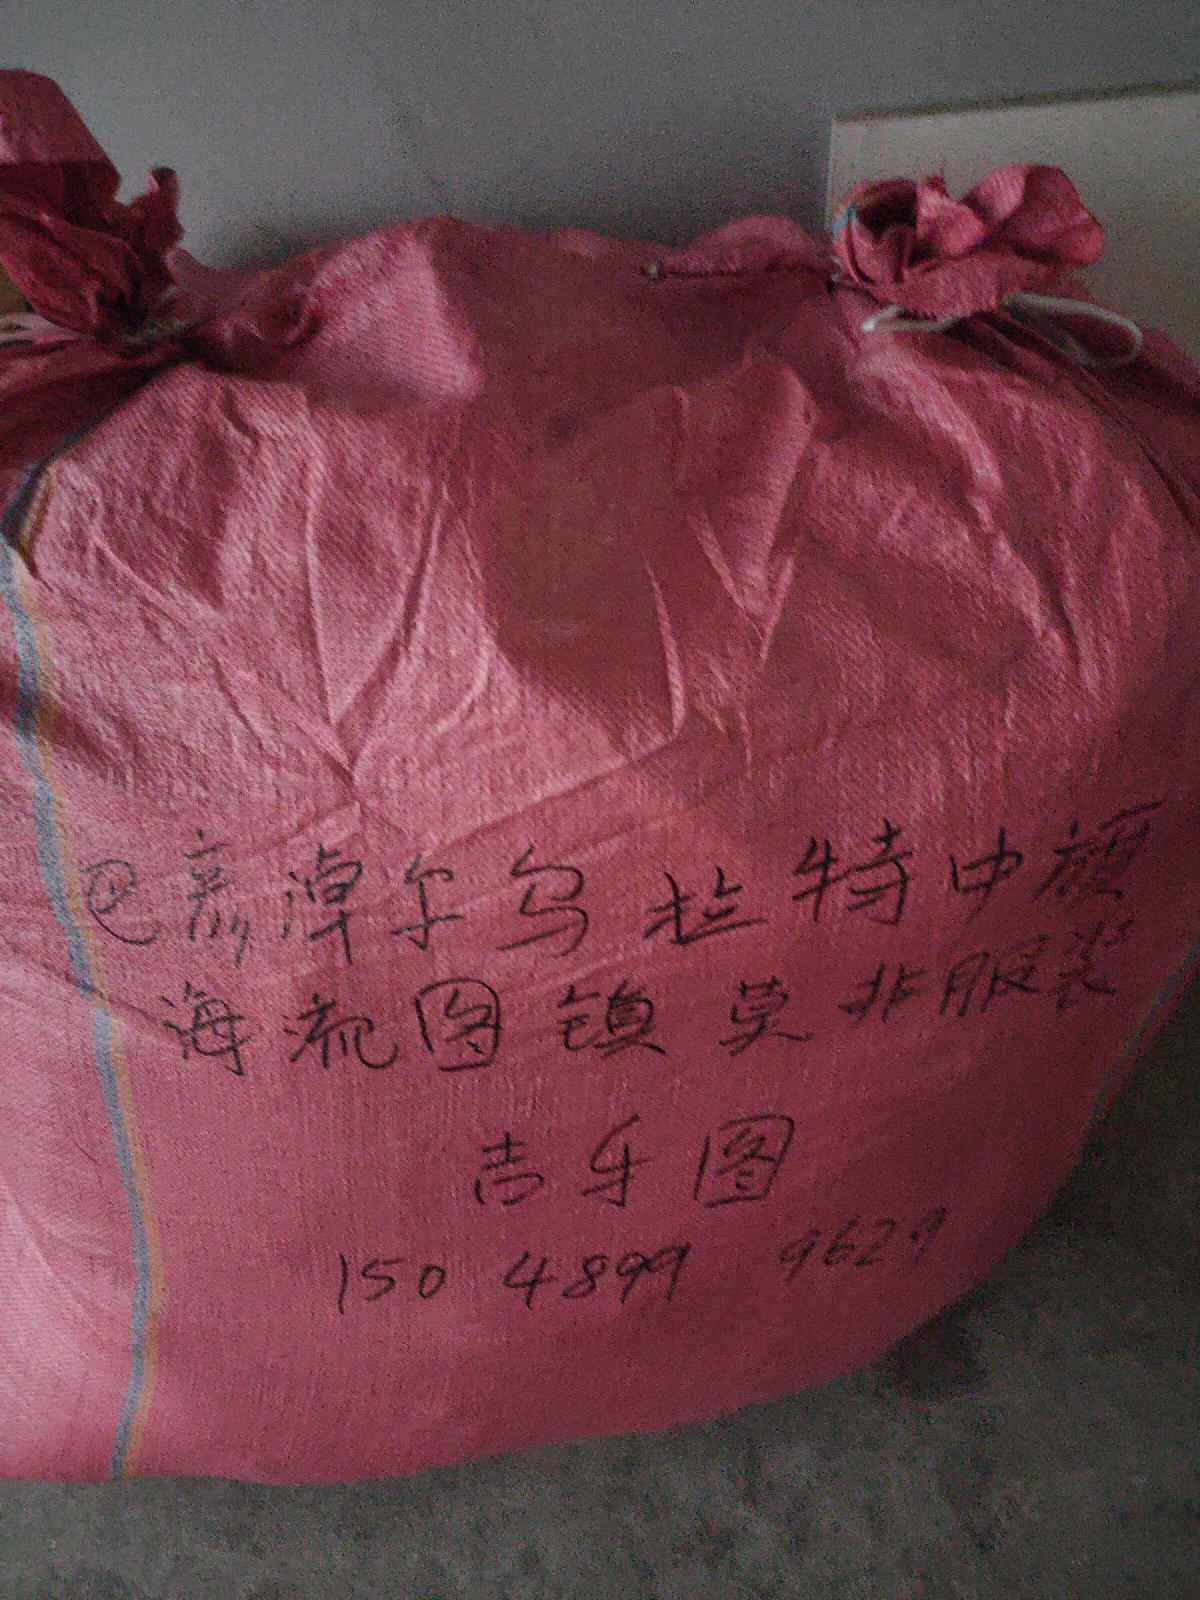 巴彦淖尔乌拉特中旗
海流图镇莫非服装
吉乐图
150 4899 9629